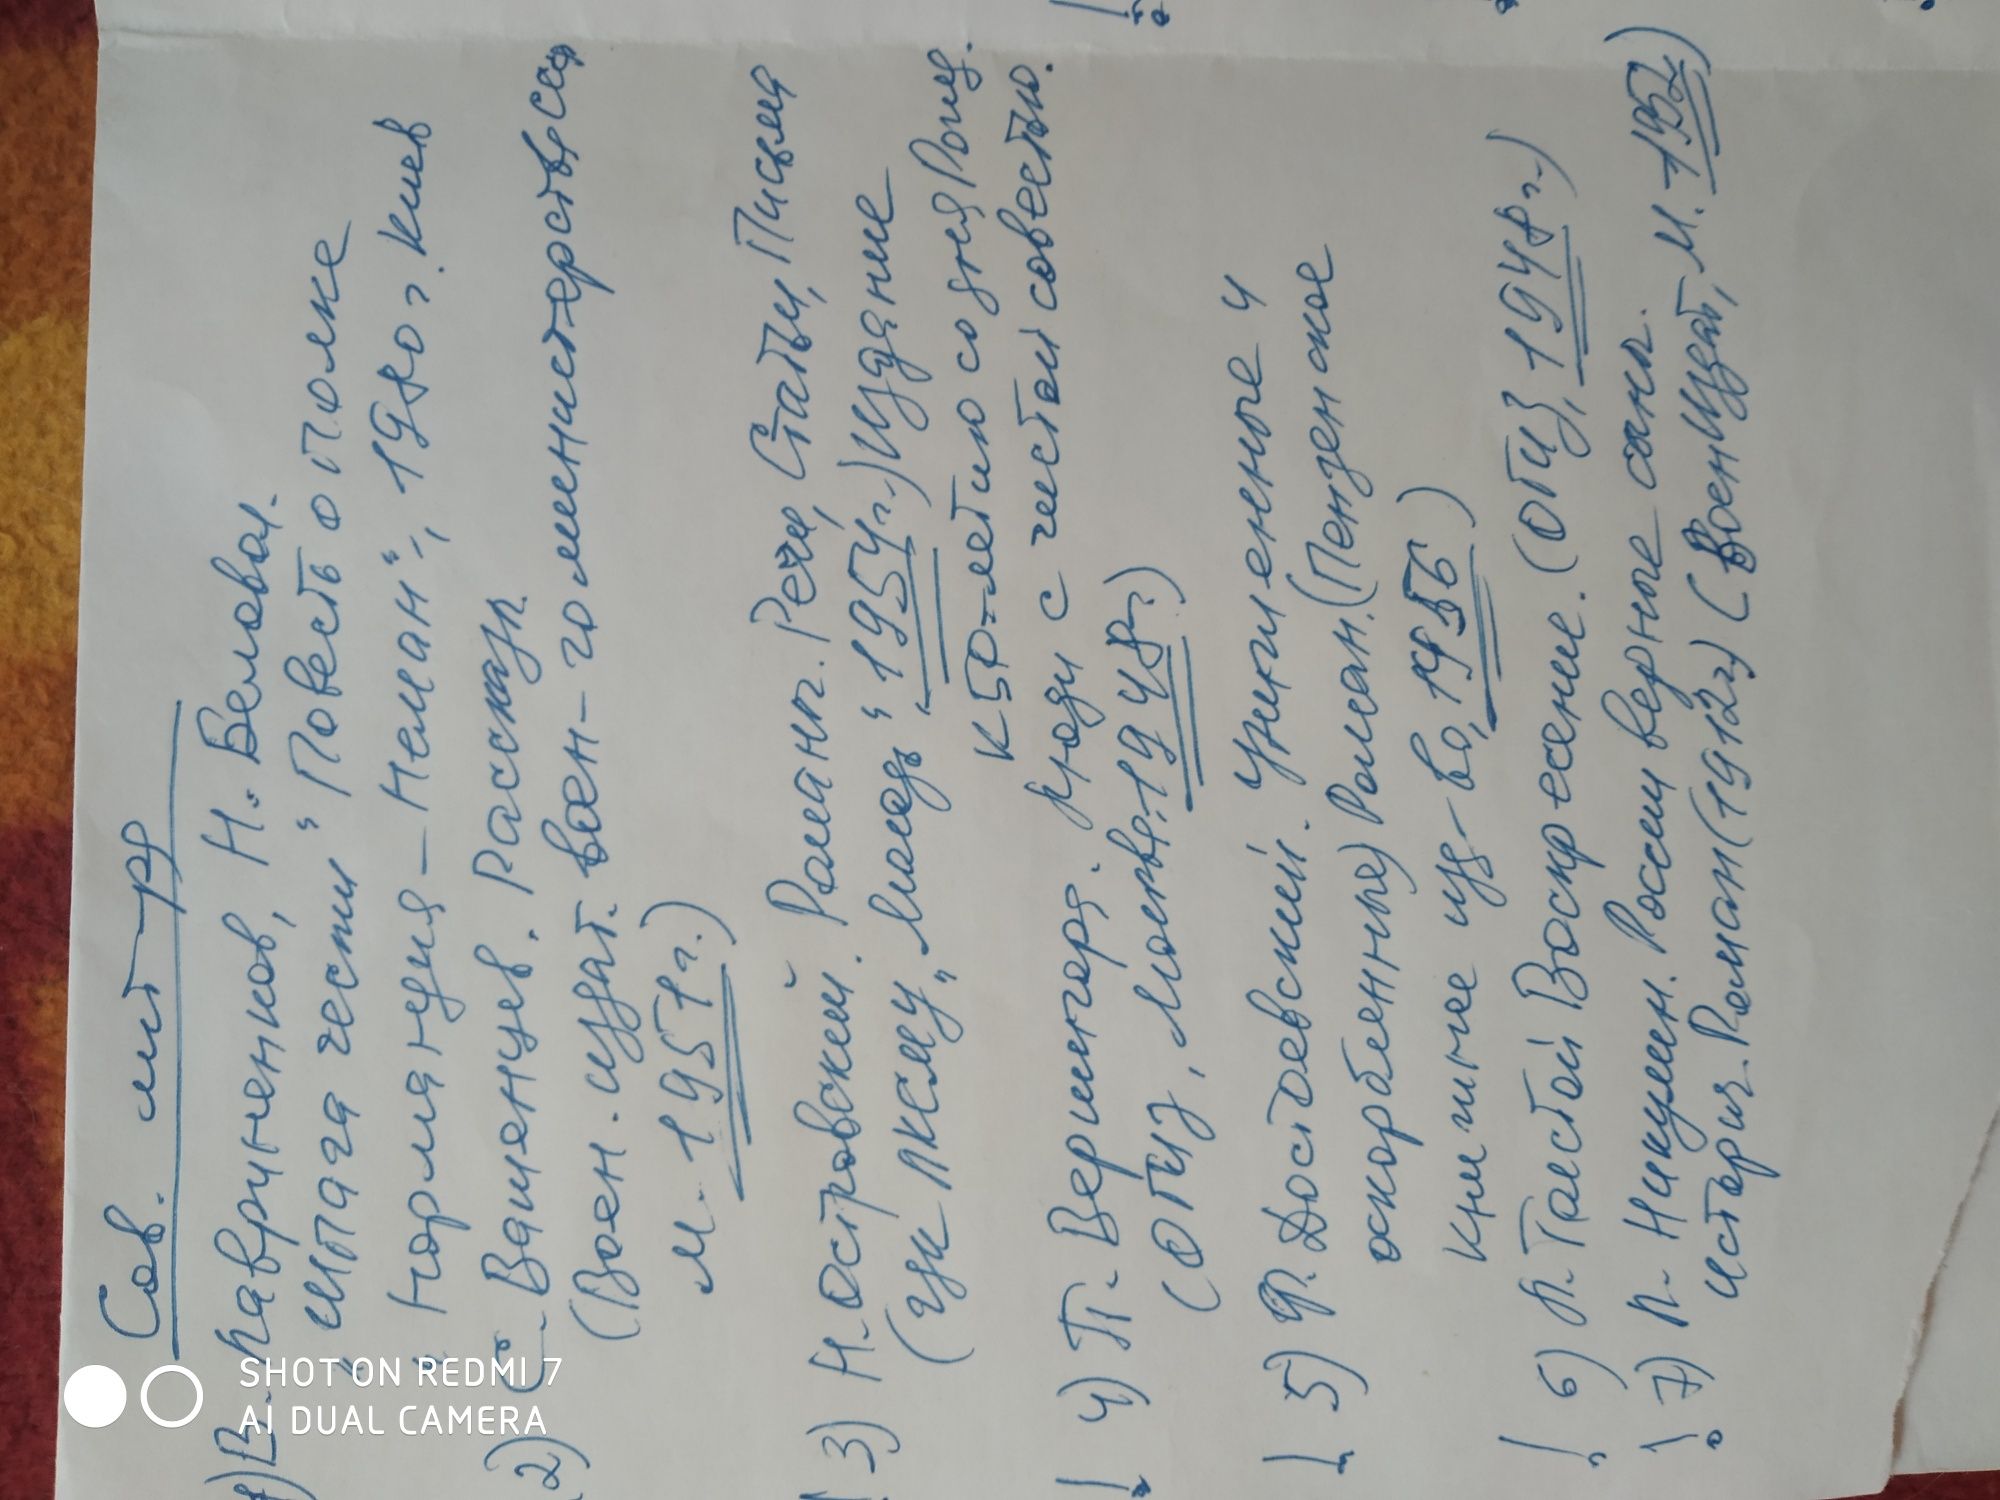 Сов. лит-ра
1) В. Лавриненков, Н. Белован.
"Шпага чести" "Повесть о полке
"Нормандия – Неман", 1980 г. Киев
2) С. Вашенцев. Рассказы
(Воен. издат. Воен-го министерства ссср
М. 1951 г.)
! 3) Н. Островский. Романы. Речи, Статьи, Письма
(ЦК ЛКСМУ, "Молодь", 1954 г.) Издание
к 50-летию со дня Рожд.
! 4) П. Вершигора. Люди с чистой совестью.
(ОГИЗ, Москва. 1948 г.)
! 5) Ф. Достоевский. Униженные и
оскорбленные) Роман. (Пензенское
книжное из-во, 1956)
! 6) Л. Толстой Воскресение. (ОГИЗ, 1948 г.)
! 7) Л. Никулин. России верные сыны.
истор. Роман (1912 г) (ВоенИздат, М. 1952)
SHOT ON REDMI 7
AI DUAL CAMERA